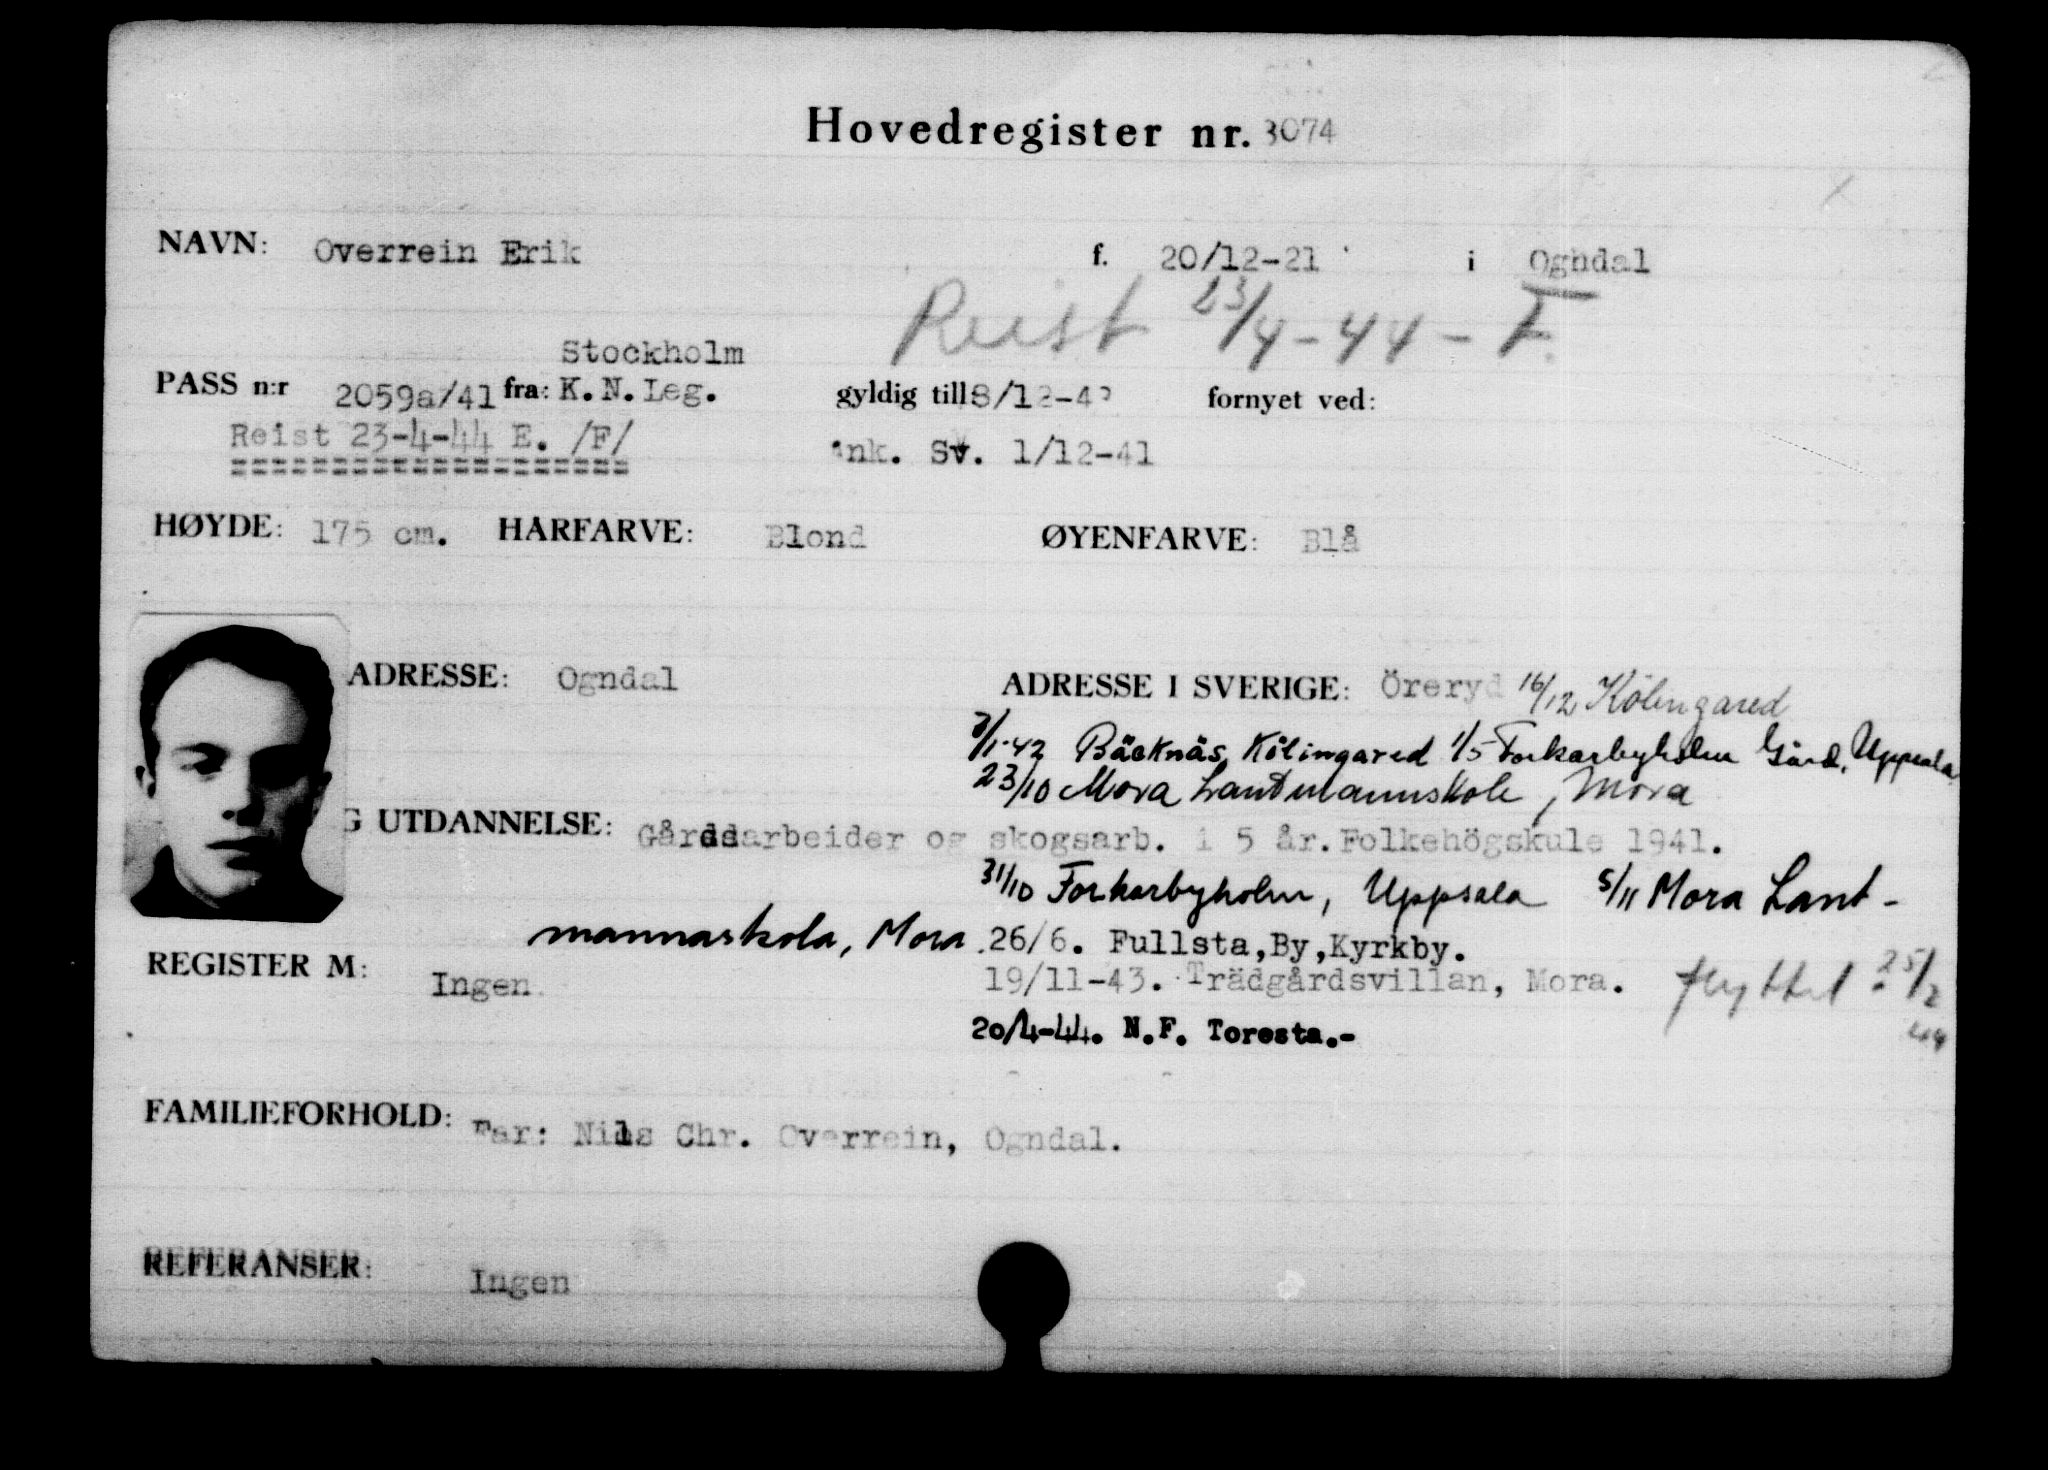 Hovedregister nr. 3074
NAVN: Overrein Erik f. 20/12-21 i Ogndal
Reist 23/4-44 - F.
Stockholm
PASS n:r 2059a/41 fra: K.N.Leg. gyldig till 8/12-42 fornyet ved:
Reist 23-4-44 E. /F/ ank. Sv. 1/12-41
===================
HØYDE: 175 cm. HÅRFARVE: Blond ØYENFARVE: Blå
ADRESSE: Ogndal ADRESSE I SVERIGE: Öreryd 16/12 Kölingared
/1-42 Bäcknäs, Kölingared 1/5 Forkarbyholm Gård, Uppsala
23/10 Mora Lantmannskole, Mora
G UTDANNELSE: Gårdsarbeider og skogsarb. i 5 år. Folkehögskule 1941.
31/10 Forkarbyholm, Uppsala 5/11 Mora Lant-
mannaskola, Mora. 26/6. Fullsta,By,Kyrkby.
REGISTER M: Ingen 19/11-43. Trädgårdsvillan, Mora. flyttet 25/2
44
20/4-44. N.F. Toresta.-
FAMILIEFORHOLD: Far: Nils Chr. Overrein, Ogndal.
REFERANSER: Ingen